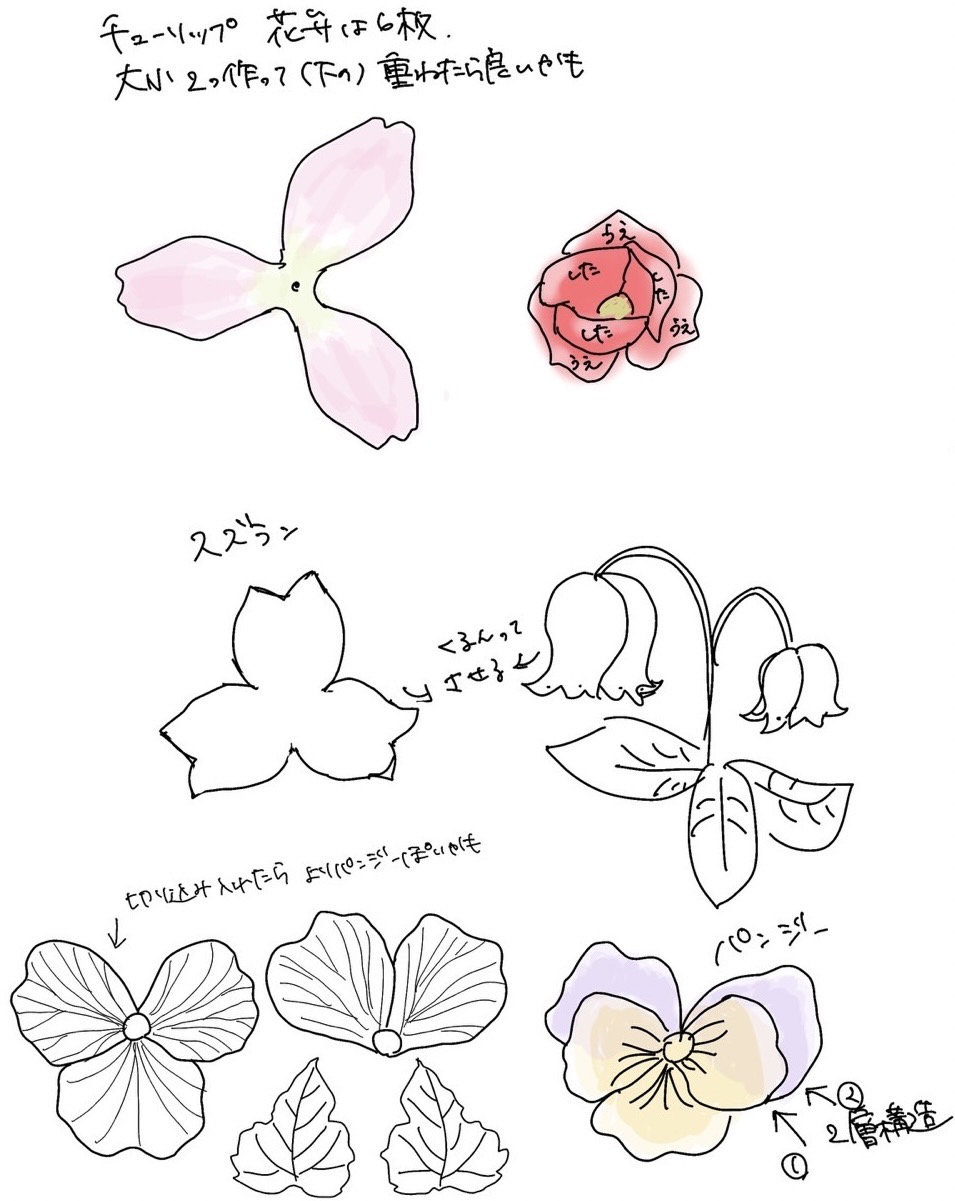 チューリップ 花弁は6枚.
大小2つ作って(下の)重ねたら良いかも
うえ
した
した
した
うえ
うえ
スズラン
くるんって
させる
切り込み入れたら よりパンジーっぽいかも
パンジー
②
2層構造
①